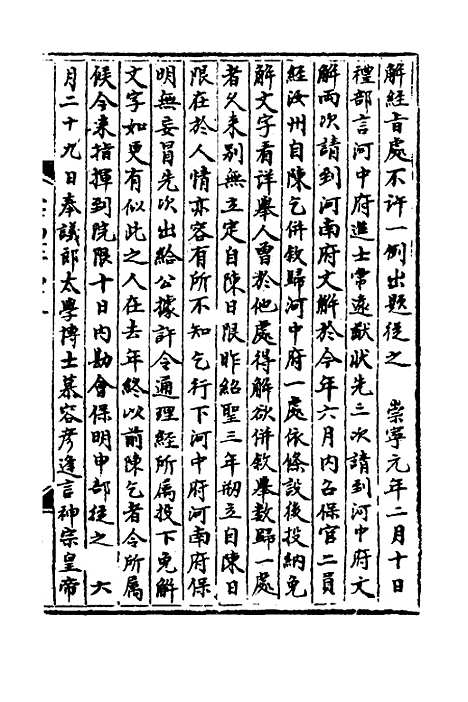 解經旨處不許一例出題從之　崇寧元年二月十日
禮部言河中府進士常遠猷狀先三次請到河中府文
解兩次請到河南府文解於今年六月內召保官二員
經汝州自陳乞併敘歸河中府一處依條設後投納免
解文字看詳舉人曾於他處得解欲併敘舉數歸一處
者久來別無立定自陳日限昨紹聖三年刱立自陳日
限在於人情亦容有所不知乞行下河中府河南府保
明無妄冒先次出給公據許令通理經所属投下免解
文字如更有似此之人在去年終以前陳乞者令所属
候今来指揮到院限十日内勘會保明申部從之　六
月二十九日奉議郎太學博士慕容彦逢言神宗皇帝